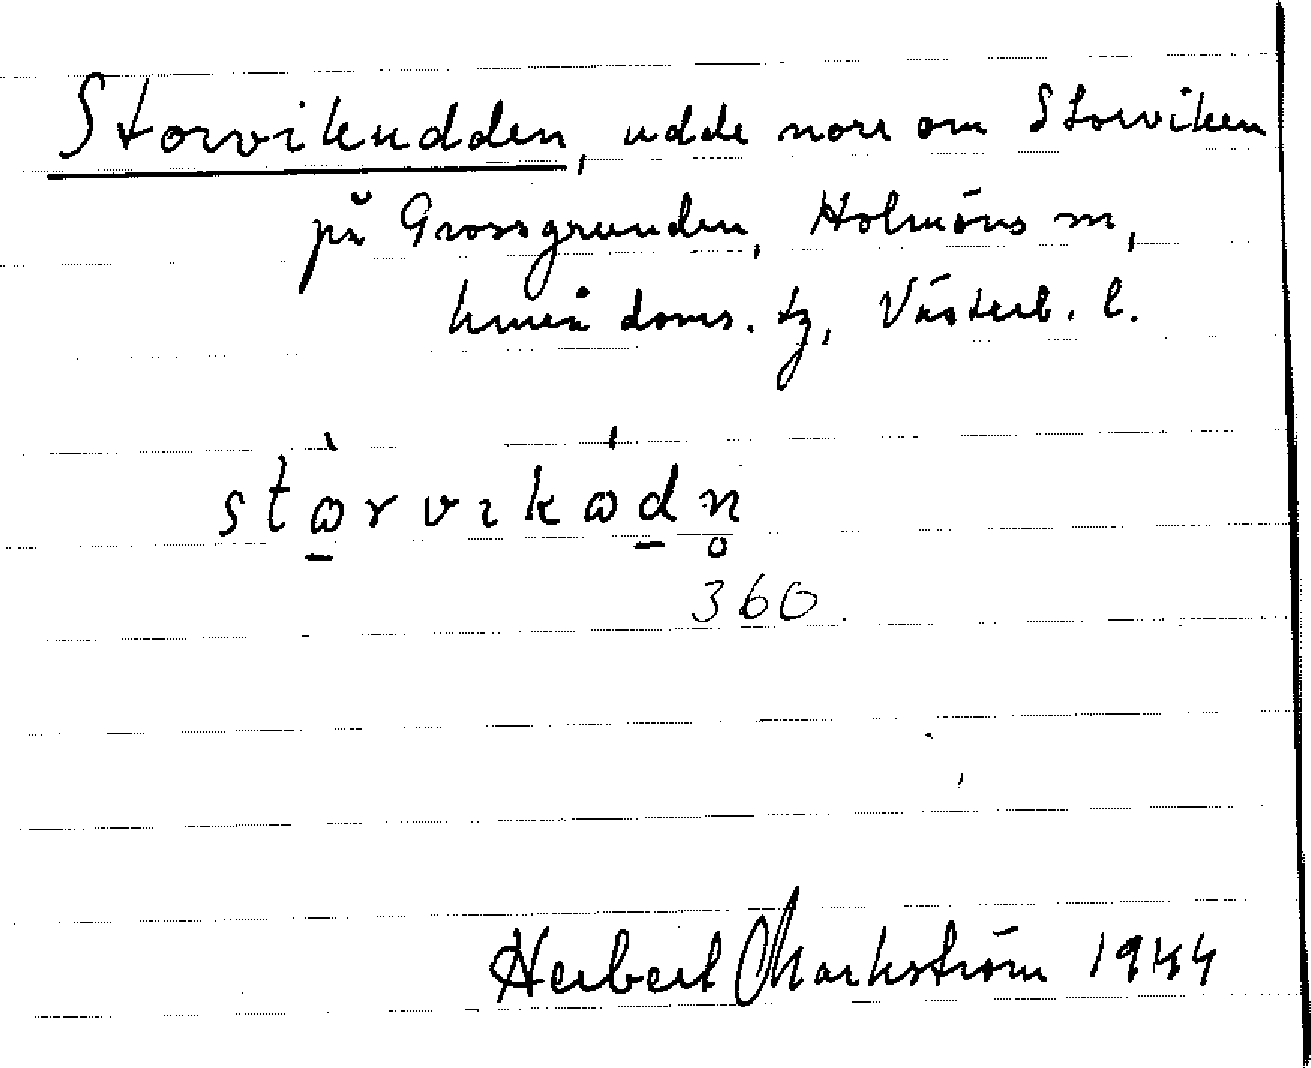 Storvikudden, udde norr om Storviken
på Grossgrunden, Holmöns sn,
Umeå doms. tg, Västerb. l.
stɷ̀rvıkɷ́dn̥
360
Herbert Markström 1944